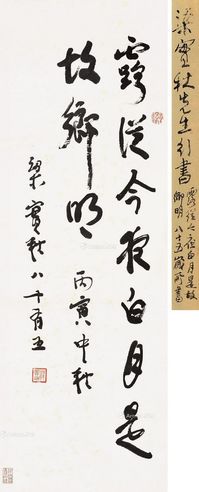 梁實秋先生行書
露從今夜白月是故
鄉明 八十五歲所書
露從今夜白月是
故鄉明
丙寅中秋
梁實秋八十有五